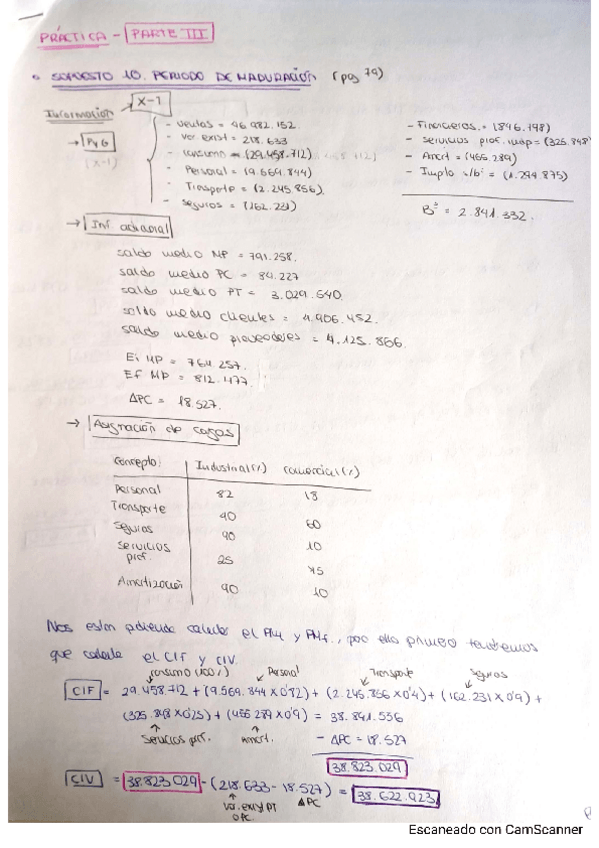 PRÁCTICA - PARTE III
• SUPUESTO 10. PERIODO DE MADURACIÓN (pag 79)
Información → X-1
→ PyG
(X-1)
- Ventas = 46.982.152
- Var. exist = 218.633
- Consumo = (29.458.712)
- Personal = (9.569.844)
- Transporte = (2.245.856)
- Seguros = (162.231)
- Financieros = (846.198)
- Servicios prof. indep = (325.848
- Amort = (456.289)
- Impto s/bº = (1.294.875)
Bº = 2.841.332.
→ Inf. adicional
saldo medio MP = 791.258.
saldo medio PC = 84.227
saldo medio PT = 3.029.640.
saldo medio clientes = 4.906.452.
saldo medio proveedores = 4.125.866.
Ei MP = 764.257.
Ef MP = 812.477.
ΔPC = 18.527.
→ Asignación de cargas
Concepto: Industrial (%) Comercial (%)
Personal 82 18
Transporte 40 60
Seguros 90 10
Servicios prof. 25 75
Amortización 90 10
Nos están pidiendo calcular el PMe y PMf, por ello primero tendremos
que calcular el CIF y CIV.
Consumo (100%) Personal Transporte Seguros
CIF = 29.458.712 + (9.569.844 x 0'82) + (2.245.856 x 0'4) + (162.231 x 0'9) +
(325.848 x 0'25) + (456.289 x 0'9) = 38.841.556
Servicios prof. Amort. - ΔPC = 18.527
38.823.029
CIV = 38.823.029 - (218.633 - 18.527) = 38.622.923
Var. exist PT ΔPC
Escaneado con CamScanner